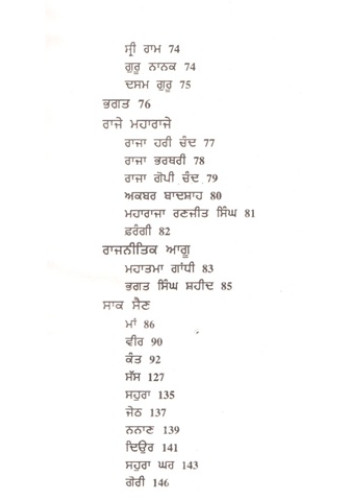 ਸ੍ਰੀ ਰਾਮ 74
ਗੁਰੂ ਨਾਨਕ 74
ਦਸਮ ਗੁਰੂ 75
ਭਗਤ 76
ਰਾਜੇ ਮਹਾਰਾਜੇ
ਰਾਜਾ ਹਰੀ ਚੰਦ 77
ਰਾਜਾ ਭਰਥਰੀ 78
ਰਾਜਾ ਗੋਪੀ ਚੰਦ 79
ਅਕਬਰ ਬਾਦਸ਼ਾਹ 80
ਮਹਾਰਾਜਾ ਰਣਜੀਤ ਸਿੰਘ 81
ਫ਼ਰੰਗੀ 82
ਰਾਜਨੀਤਿਕ ਆਗੂ
ਮਹਾਤਮਾ ਗਾਂਧੀ 83
ਭਗਤ ਸਿੰਘ ਸ਼ਹੀਦ 85
ਸਾਕ ਸੈਣ
ਮਾਂ 86
ਵੀਰ 90
ਕੰਤ 92
ਸੱਸ 127
ਸਹੁਰਾ 135
ਜੇਠ 137
ਨਨਾਣ 139
ਦਿਉਰ 141
ਸਹੁਰਾ ਘਰ 143
ਗੋਰੀ 146